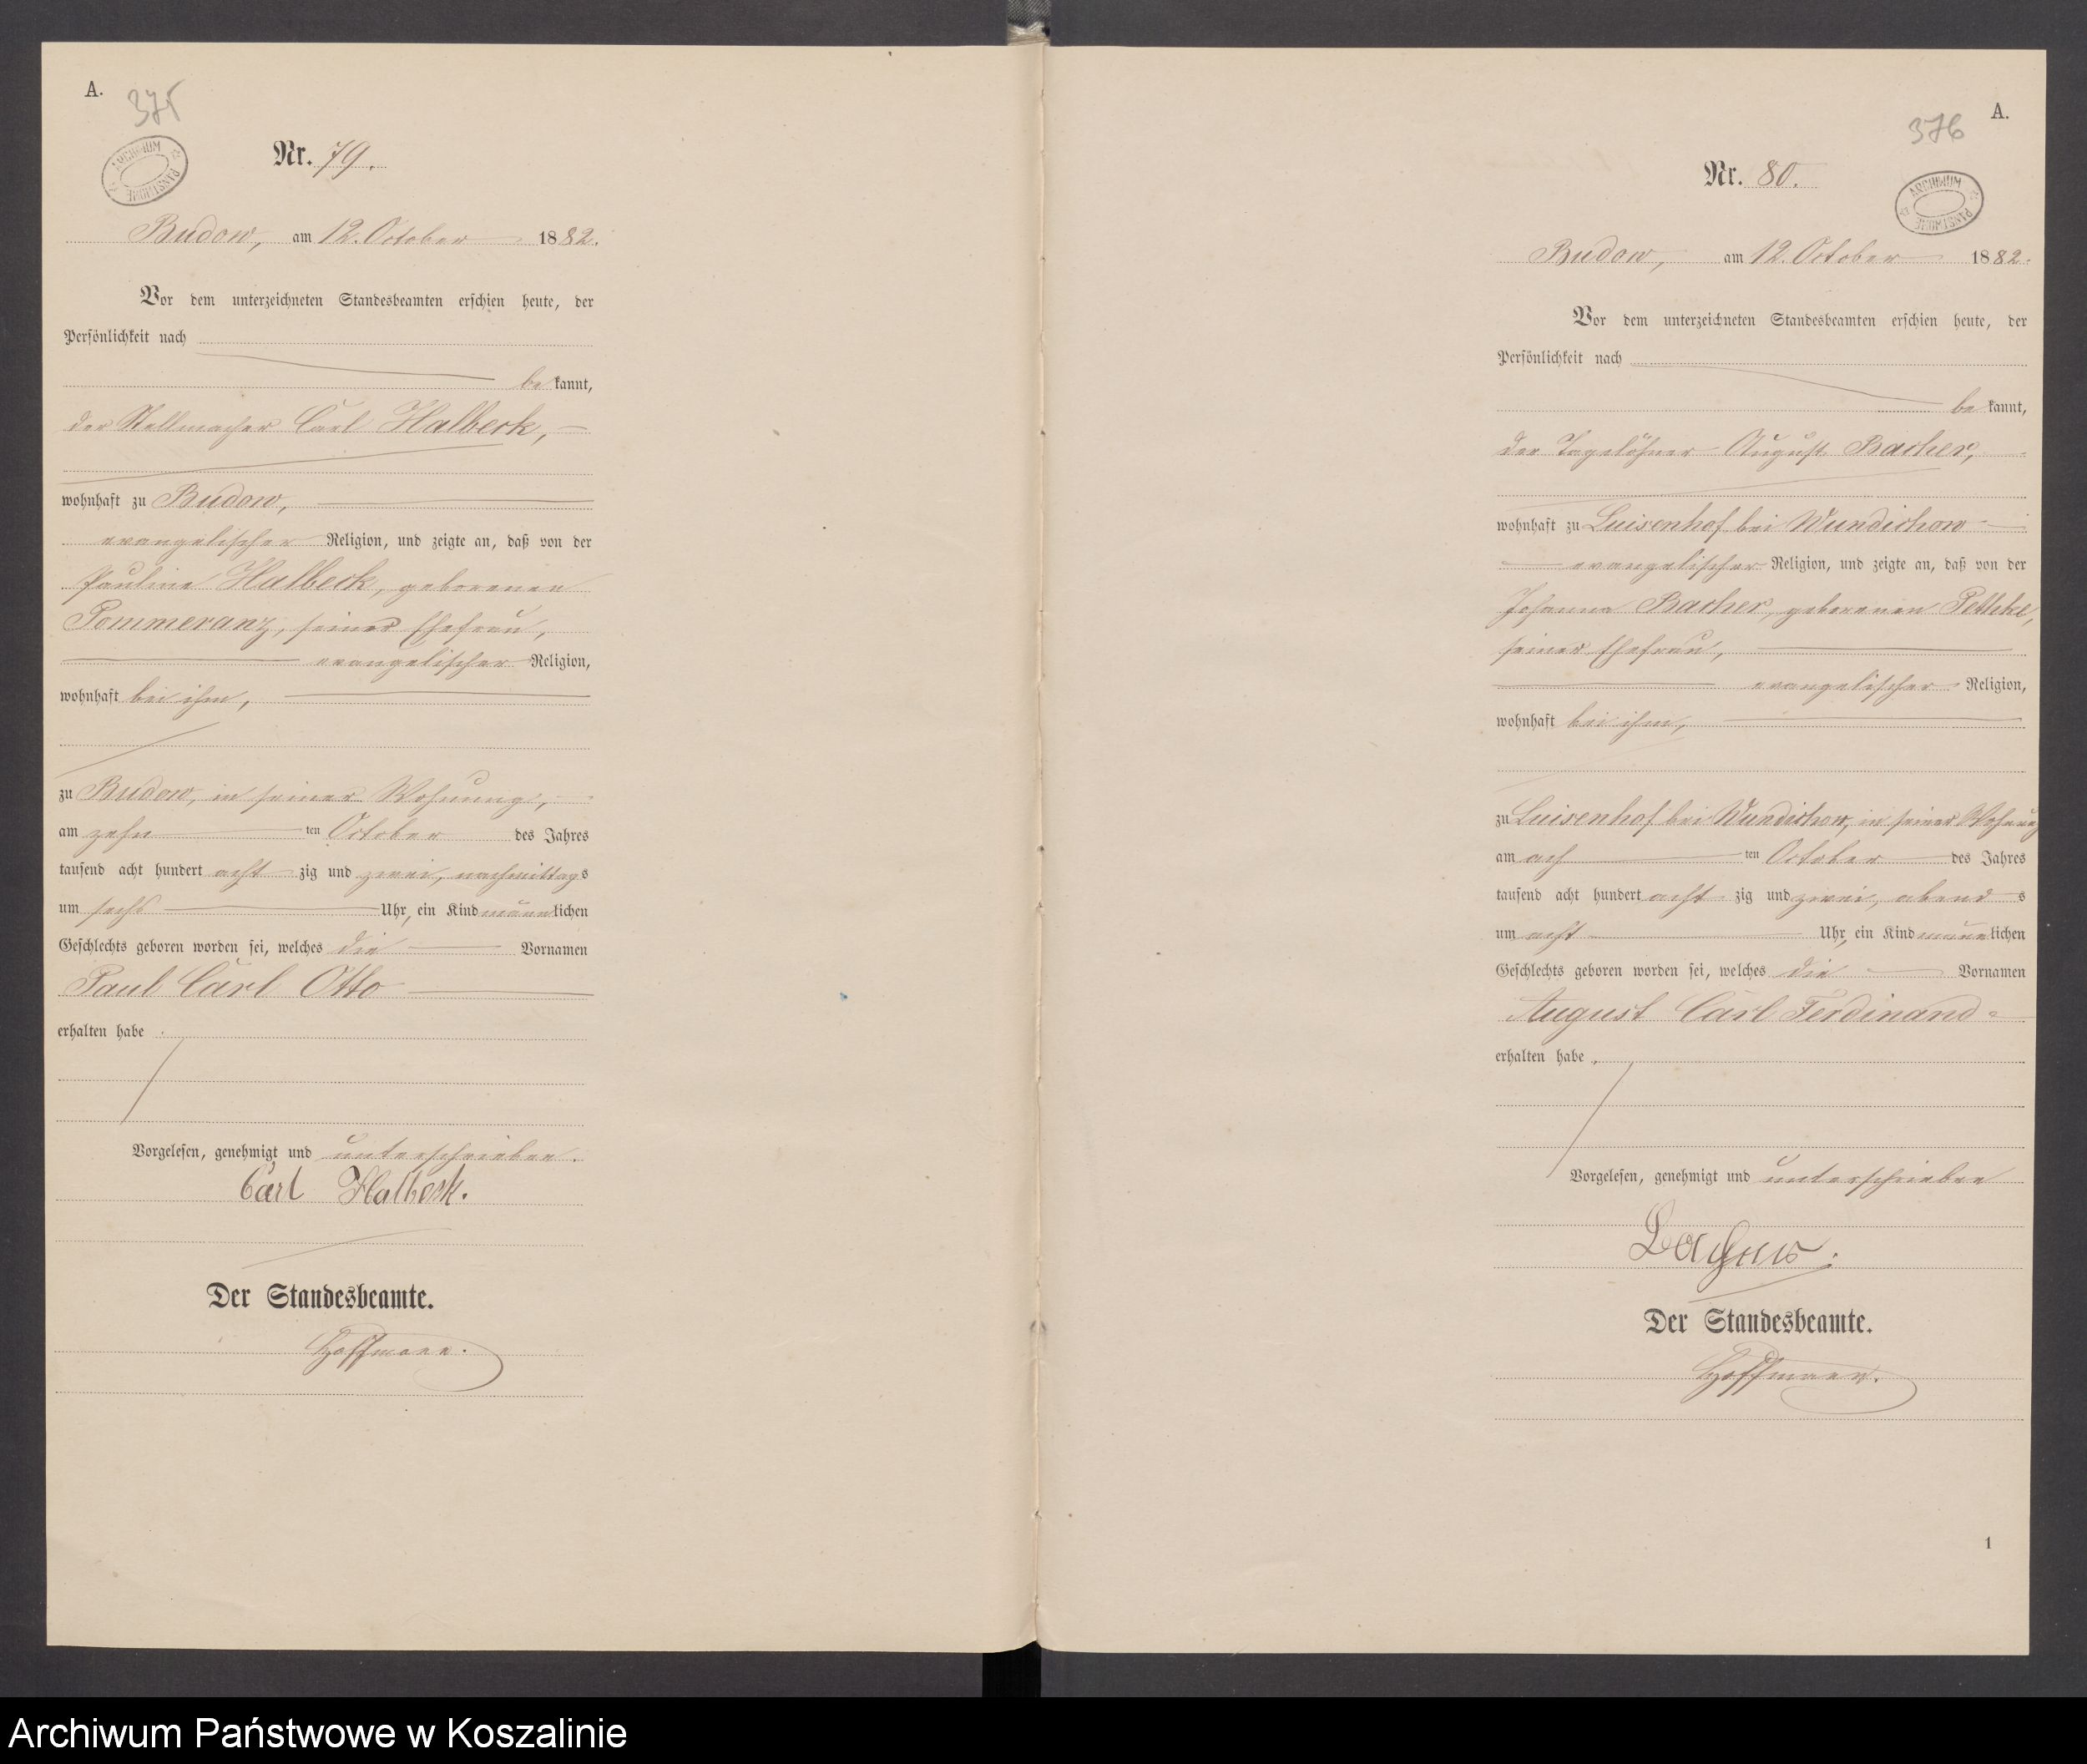 A.
375
ARCHIWUM PAŃSTWOWE
Nr. 79.
Budow, am 12. October 1882.
Vor dem unterzeichneten Standesbeamten erschien heute, der
Persönlichkeit nach
bekannt,
der Stellmacher Carl Halbeck,
wohnhaft zu Budow,
evangelischer Religion, und zeigte an, daß von der
Pauline Halbeck, geborenen
Pommeranz, seiner Ehefrau,
evangelischer Religion,
wohnhaft bei ihm,
zu Budow, in seiner Wohnung,
am zehn ten October des Jahres
tausend acht hundert acht zig und zwei, nachmittags
um sechs Uhr, ein Kind männlichen
Geschlechts geboren worden sei, welches die Vornamen
Paul Carl Otto
erhalten habe.
Vorgelesen, genehmigt und unterschrieben.
Carl Halbeck.
Der Standesbeamte.
Hoffmann.
A.
376
ARCHIWUM PAŃSTWOWE
Nr. 80.
Budow, am 12. October 1882.
Vor dem unterzeichneten Standesbeamten erschien heute, der
Persönlichkeit nach
bekannt,
der Tagelöhner August Bacher,
wohnhaft zu Luisenhof bei Wundichow
evangelischer Religion, und zeigte an, daß von der
Johanna Bacher, geborenen Pethke,
seiner Ehefrau,
evangelischer Religion,
wohnhaft bei ihm,
zu Luisenhof bei Wundichow, in seiner Wohnung
am ach ten October des Jahres
tausend acht hundert acht zig und zwei, abends
um acht Uhr, ein Kind männlichen
Geschlechts geboren worden sei, welches die Vornamen
August Carl Ferdinand
erhalten habe.
Vorgelesen, genehmigt und unterschrieben
Der Standesbeamte.
Hoffmann.
1
Archiwum Państwowe w Koszalinie